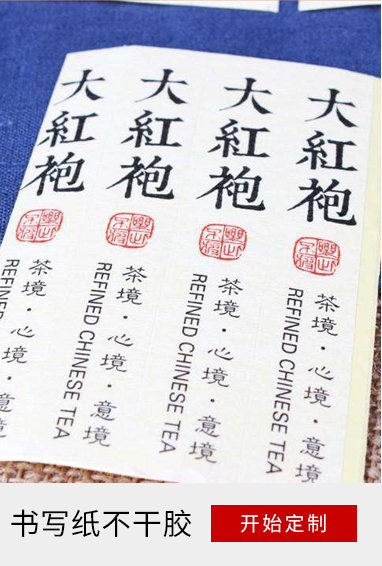 大紅袍
茶境·心境·意境
REFINED
大紅袍
茶境·心境·意境
REFINED CHINESE TEA
大紅袍
茶境·心境·意境
REFINED CHINESE TEA
大紅袍
茶境·心境·意境
REFINED CHINESE TEA
书写纸不干胶
开始定制